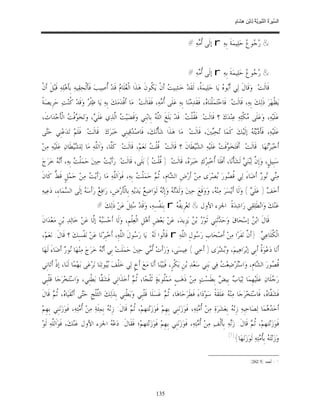 السِّيرَةُ النَّبَوِيَّةُ لابْنِ هِشَام
& رُجُوعُ حَلِيمَةَ بِهِ ٣ إلَى أُمِّهِ #
& رُجُوعُ حَلِيمَةَ بِهِ ٣ إلَى أُمِّهِ #
قَالَتْ: وَقَالَ لِي أَبُوهُ يَا حَلِيمَةُ، لَقَدْ خَشِيتُ أَنْ يَكُونَ هَذَا الْغُلَامُ قَدْ أُصِيبَ فَأَلْحِقِيهِ بِأَهْلِهِ قَبْلَ أَنْ
يَظْهَرَ ذَلِكَ بِهِ، قَالَتْ: فَاحْتَمَلْنَاهُ، فَقَدِمْنَا بِهِ عَلَى أُمِّهِ، فَقَالَتْ: مَا أَقْدَمَكِ بِهِ يَا ظِئْرُ وَقَدْ كُنْتِ حَرِيصَةً
عَلَيْهِ، وَعَلَى مُكْثِهِ عِنْدَكِ ؟ قَالَتْ: فَقُلْتُ: قَدْ بَلَغَ اللَّهُ بِابْنِي وَقَضَيْتُ الَّذِي عَلَيَّ، وَتَخَوَّفْتُ الْأَحْدَاثَ،
عَلَيْهِ، فَأَدَّيْتُهُ إلَيْكِ كَمَا تُحِبِّينَ، قَالَتْ: مَا هَذَا شَأْنُكِ، فَاصْدُقِينِي خَبَرَكِ. قَالَتْ: فَلَمْ تَدَعْنِي حَتَّى
أَخْبَرْتُهَا. قَالَتْ: أَفَتَخَوَّفْتِ عَلَيْهِ الشَّيْطَانَ ؟ قَالَتْ: قُلْتُ نَعَمْ، قَالَتْ: كَلَّا، وَاَللَّهِ مَا لِلشَّيْطَانِ عَلَيْهِ مِنْ
سَبِيلٍ، وَإِنَّ لِبُنَيَّ لَشَأْنًا، أَفَلَا أُخْبِرُكِ خَبَرَهُ، قَالَتْ: [ قُلْتُ ] بَلَى، قَالَتْ: رَأَيْتُ حِينَ حَمَلْتُ بِهِ، أَنَّهُ خَرَجَ
مِنِّي نُورٌ أَضَاءَ لِي قُصُورَ بُصْرَى مِنْ أَرْضِ الشَّامِ، ثُمَّ حَمَلْتُ بِهِ، فَوَاَللَّهِ مَا رَأَيْتُ مِنْ حَمْلٍ قَطُّ كَانَ
أَخَفَّ [ عَلَيَّ ] وَلَا أَيْسَرَ مِنْهُ، وَوَقَعَ حِينَ وَلَدْتُهُ وَإِنَّهُ لَوَاضِعٌ يَدَيْهِ بِالْأَرْضِ، رَافِعٌ رَأْسَهُ إلَى السَّمَاءِ، دَعِيهِ
عَنْكِ وَانْطَلِقِي رَاشِدَةً. الجزء الأول & تَعْرِيفُهُ ٣ بِنَفْسِهِ، وَقَدْ سُئِلَ عَنْ ذَلِكَ #
قَالَ ابْنُ إسْحَاقَ وَحَدَّثَنِي ثَوْرُ بْنُ يَزِيدَ، عَنْ بَعْضِ أَهْلِ الْعِلْمِ، وَلَا أَحْسَبُهُ إلَّا عَنْ خَالِدِ بْنِ مَعْدَانَ
الْكُلَاعِيِّ: (أَنَّ نَفَرًا مِنْ أَصْحَابِ رَسُولِ اللَّهِ ٣ قَالُوا لَهُ: يَا رَسُولَ اللَّهِ، أَخْبِرْنَا عَنْ نَفْسِكَ ؟ قَالَ: نَعَمْ،
أَنَا دَعْوَةُ أَبِي إبْرَاهِيمَ، وَبُشْرَى [ أَخِي ] عِيسَى، وَرَأَتْ أُمِّي حِينَ حَمَلَتْ بِي أَنَّهُ خَرَجَ مِنْهَا نُورٌ أَضَاءَ لَهَا
قُصُورَ الشَّامِ، وَاسْتُرْضِعْتُ فِي بَنِي سَعْدِ بْنِ بَكْرٍ، فَبَيْنَا أَنَا مَعَ أَخٍ لِي خَلْفَ بُيُوتِنَا نَرْعَى بَهْمًا لَنَا، إذْ أَتَانِي
رَجُلَانِ عَلَيْهِمَا ثِيَابٌ بِيضٌ بِطَسْتٍ مِنْ ذَهَبٍ مَمْلُوءَةٍ ثَلْجًا، ثُمَّ أَخَذَانِي فَشَقَّا بَطْنِي، وَاسْتَخْرَجَا قَلْبِي
فَشَقَّاهُ، فَاسْتَخْرَجَا مِنْهُ عَلَقَةً سَوْدَاءَ فَطَرَحَاهَا، ثُمَّ غَسَلَا قَلْبِي وَبَطْنِي بِذَلِكَ الثَّلْجِ حَتَّى أَنْقَيَاهُ، ثُمَّ قَالَ
أَحَدُهُمَا لِصَاحِبِهِ زِنْهُ بِعَشَرَةِ مِنْ أُمَّتِهِ، فَوَزَنَنِي بِهِمْ فَوَزَنْتهمْ، ثُمَّ قَالَ: زِنْهُ بِمِئَةٍ مِنْ أُمَّتِهِ، فَوَزَنَنِي بِهِمْ
فَوَزَنْتهمْ، ثُمَّ قَالَ: زِنْهُ بِأَلْفٍ مِنْ أُمَّتِهِ، فَوَزَنَنِي بِهِمْ فَوَزَنْتهمْ؛ فَقَالَ: دَعْهُ الجزء الأول عَنْكَ، فَوَاَللَّهِ لَوْ
وَزَنْتَهُ بِأُمَّتِهِ لَوَزَنَهَا)
135